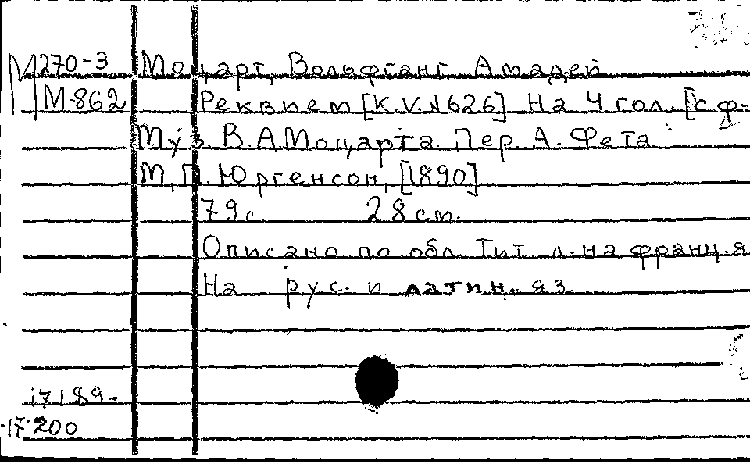 М 270-3 Моцарт, Вольфганг Амадей
М-862 Реквием [K.V.№626] На 4 гол. [с ф-
Муз. В.А.Моцарта. Пер. А. Фета
М., П. Юргенсон, [1890]
79 с. 28 см.
Описано по обл. Тит. л. на франц. я
На рус. и латин. яз.
17189-
17200